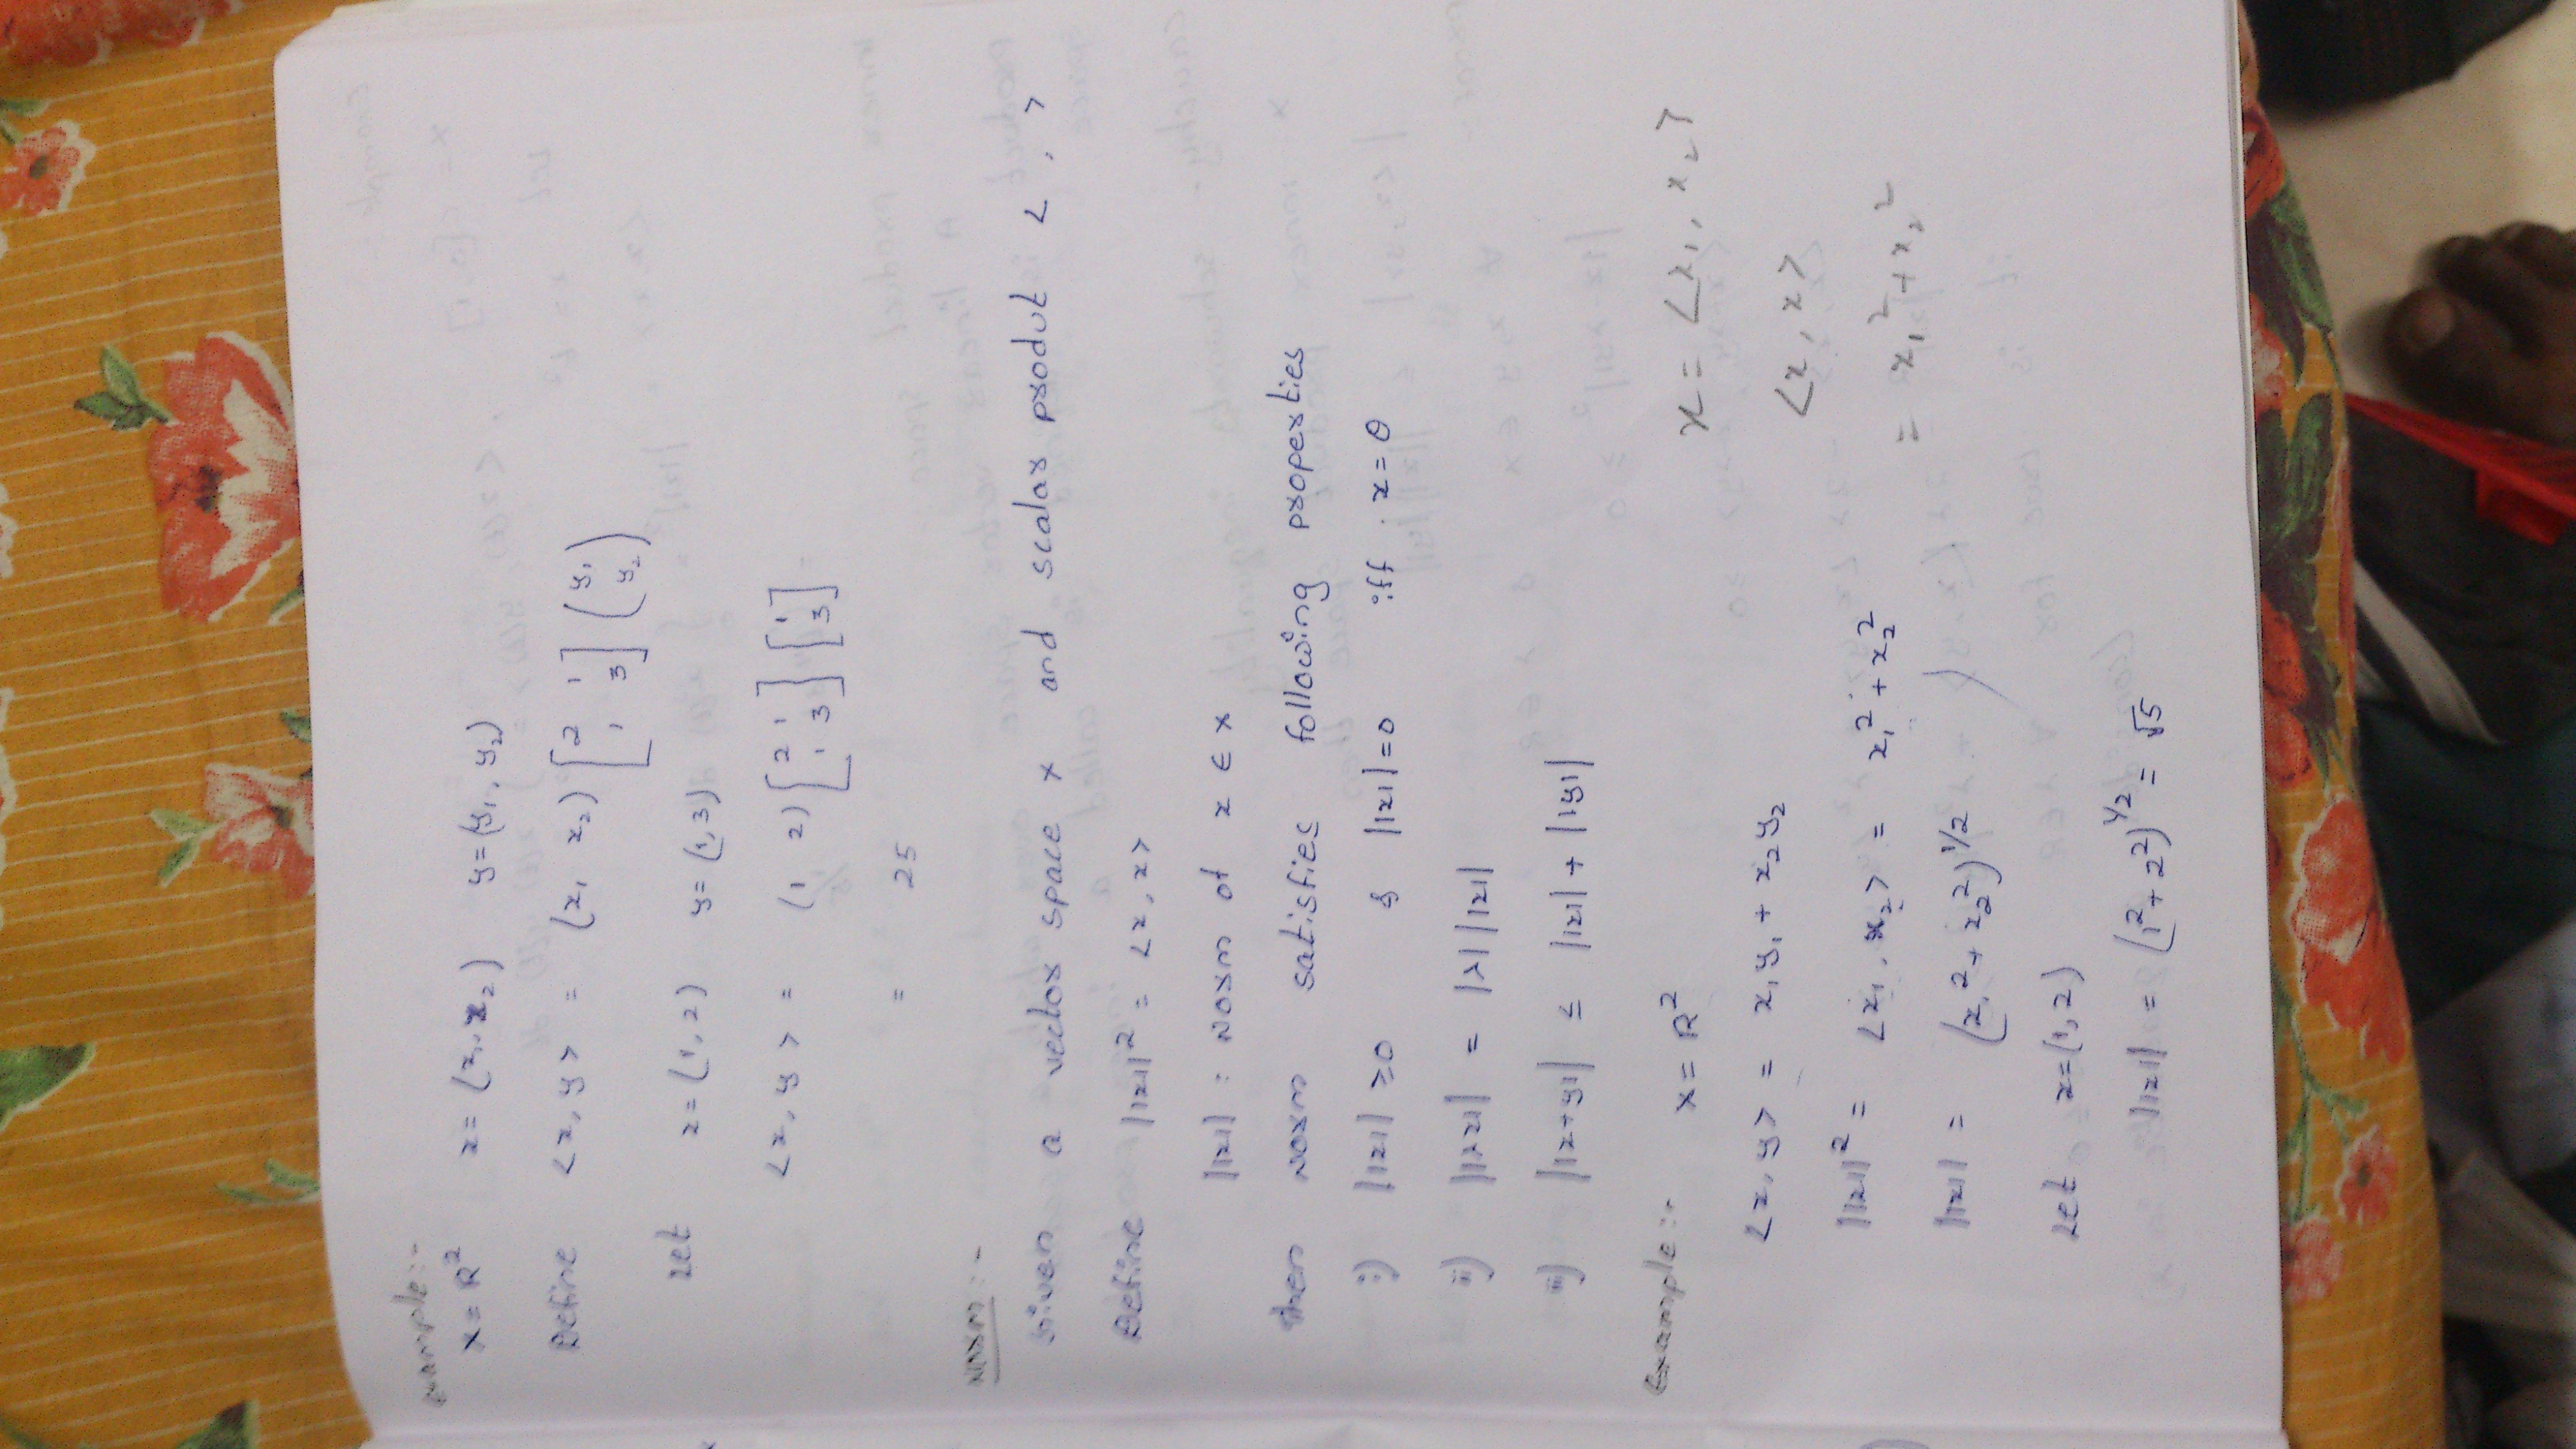 Example:-
X = R² x = (x₁, x₂) y = (y₁, y₂)
Define <x, y> = (x₁ x₂) [2 1 1 3] (y₁ y₂)
Let x = (1, 2) y = (1, 3)
<x, y> = (1 2) [2 1 1 3] [1 3]
= 25
Norm :-
Given a vector space X and scalar produt < , >
Define ||x||² = <x, x>
||x|| : Norm of x ∈ X
then Norm satisfies following properties
i) ||x|| ≥ 0 & ||x|| = 0 iff x = 0
ii) ||λx|| = |λ| ||x||
iii) ||x+y|| ≤ ||x|| + ||y||
Example :- X = R²
x = <x₁, x₂>
<x, y> = x₁y₁ + x₂y₂
<x, x>
||x||² = <x₁, x₂> = x₁² + x₂²
= x₁² + x₂²
||x|| = (x₁² + x₂²)^1/2
Let x = (1, 2)
||x|| = (1² + 2²)^1/2 = √5